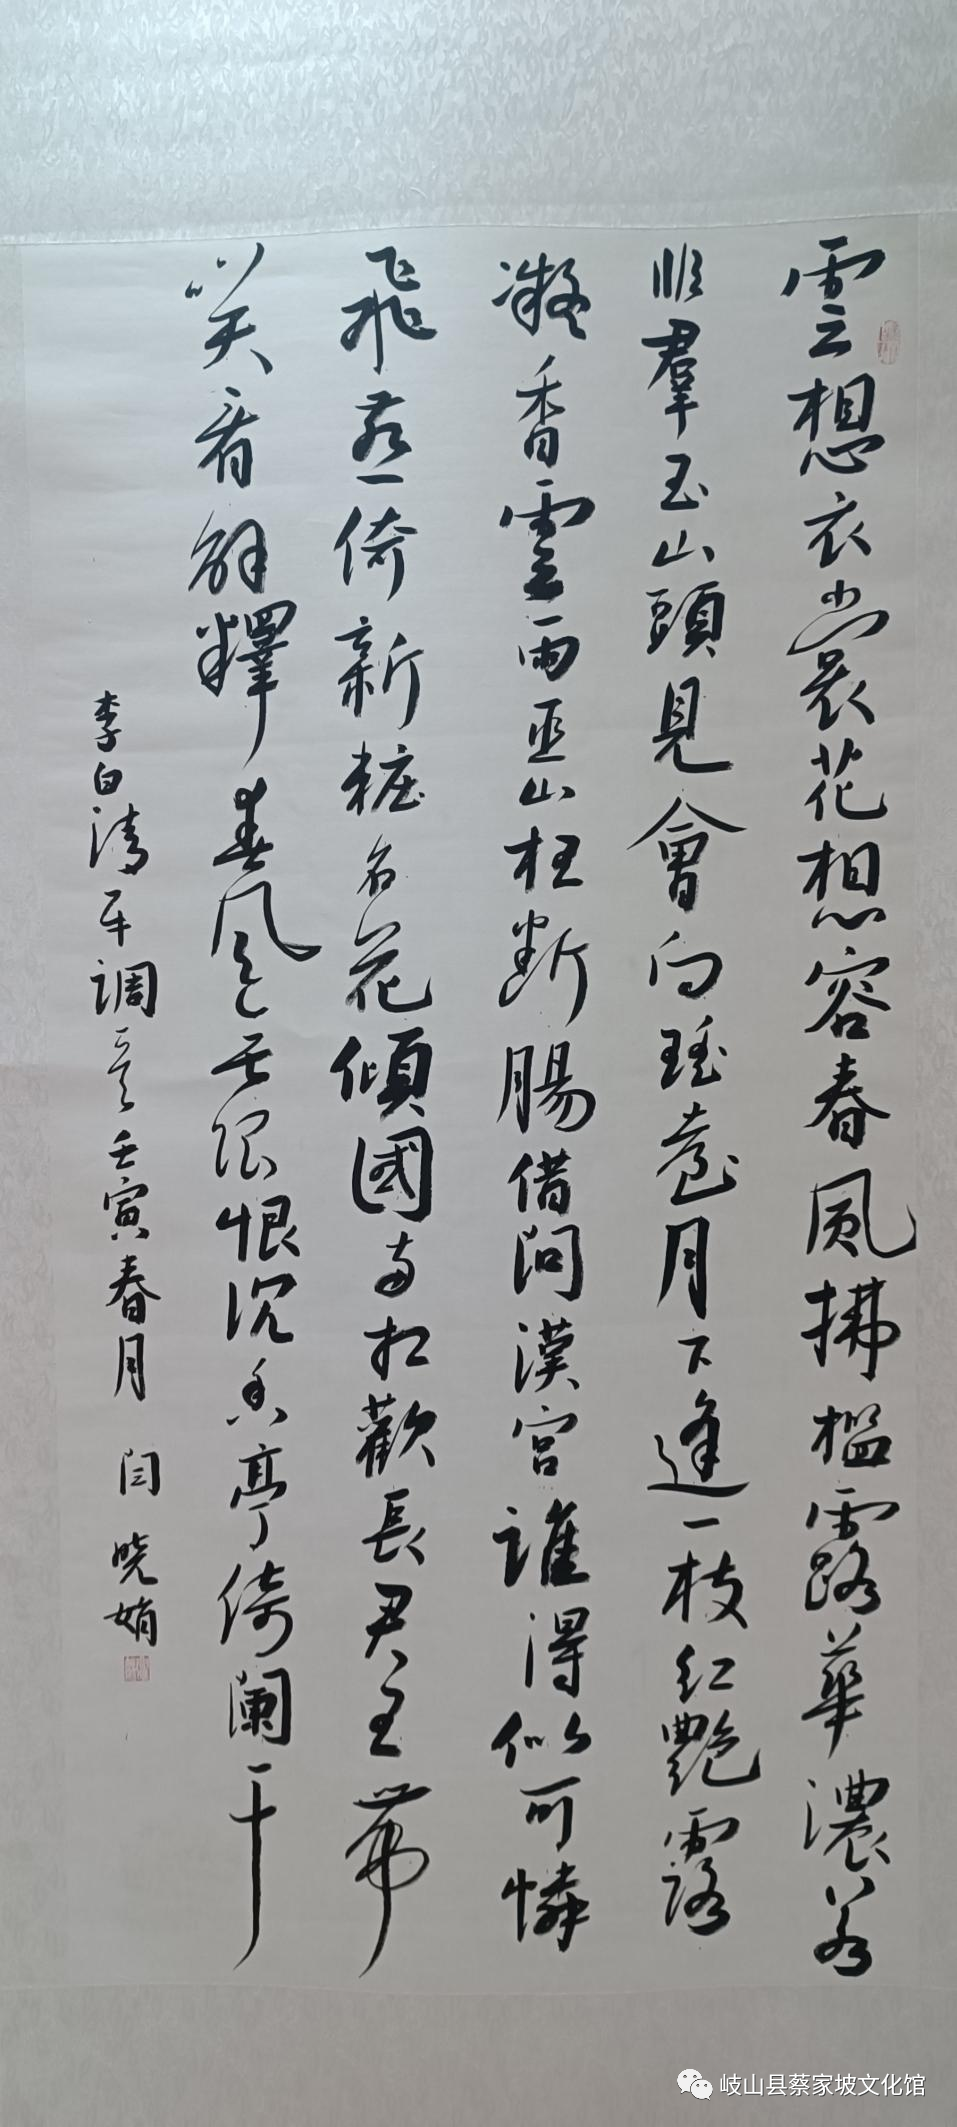 雲想衣裳花想容春風拂檻露華濃若
非羣玉山頭見會向瑤臺月下逢一枝紅艷露
凝香雲雨巫山枉斷腸借問漢宮誰得似可憐
飛燕倚新粧名花傾國兩相歡長君王帶
笑看解釋春風無限恨沉香亭倚闌干
李白清平調三章壬寅春月 闫晓娟
岐山县蔡家坡文化馆